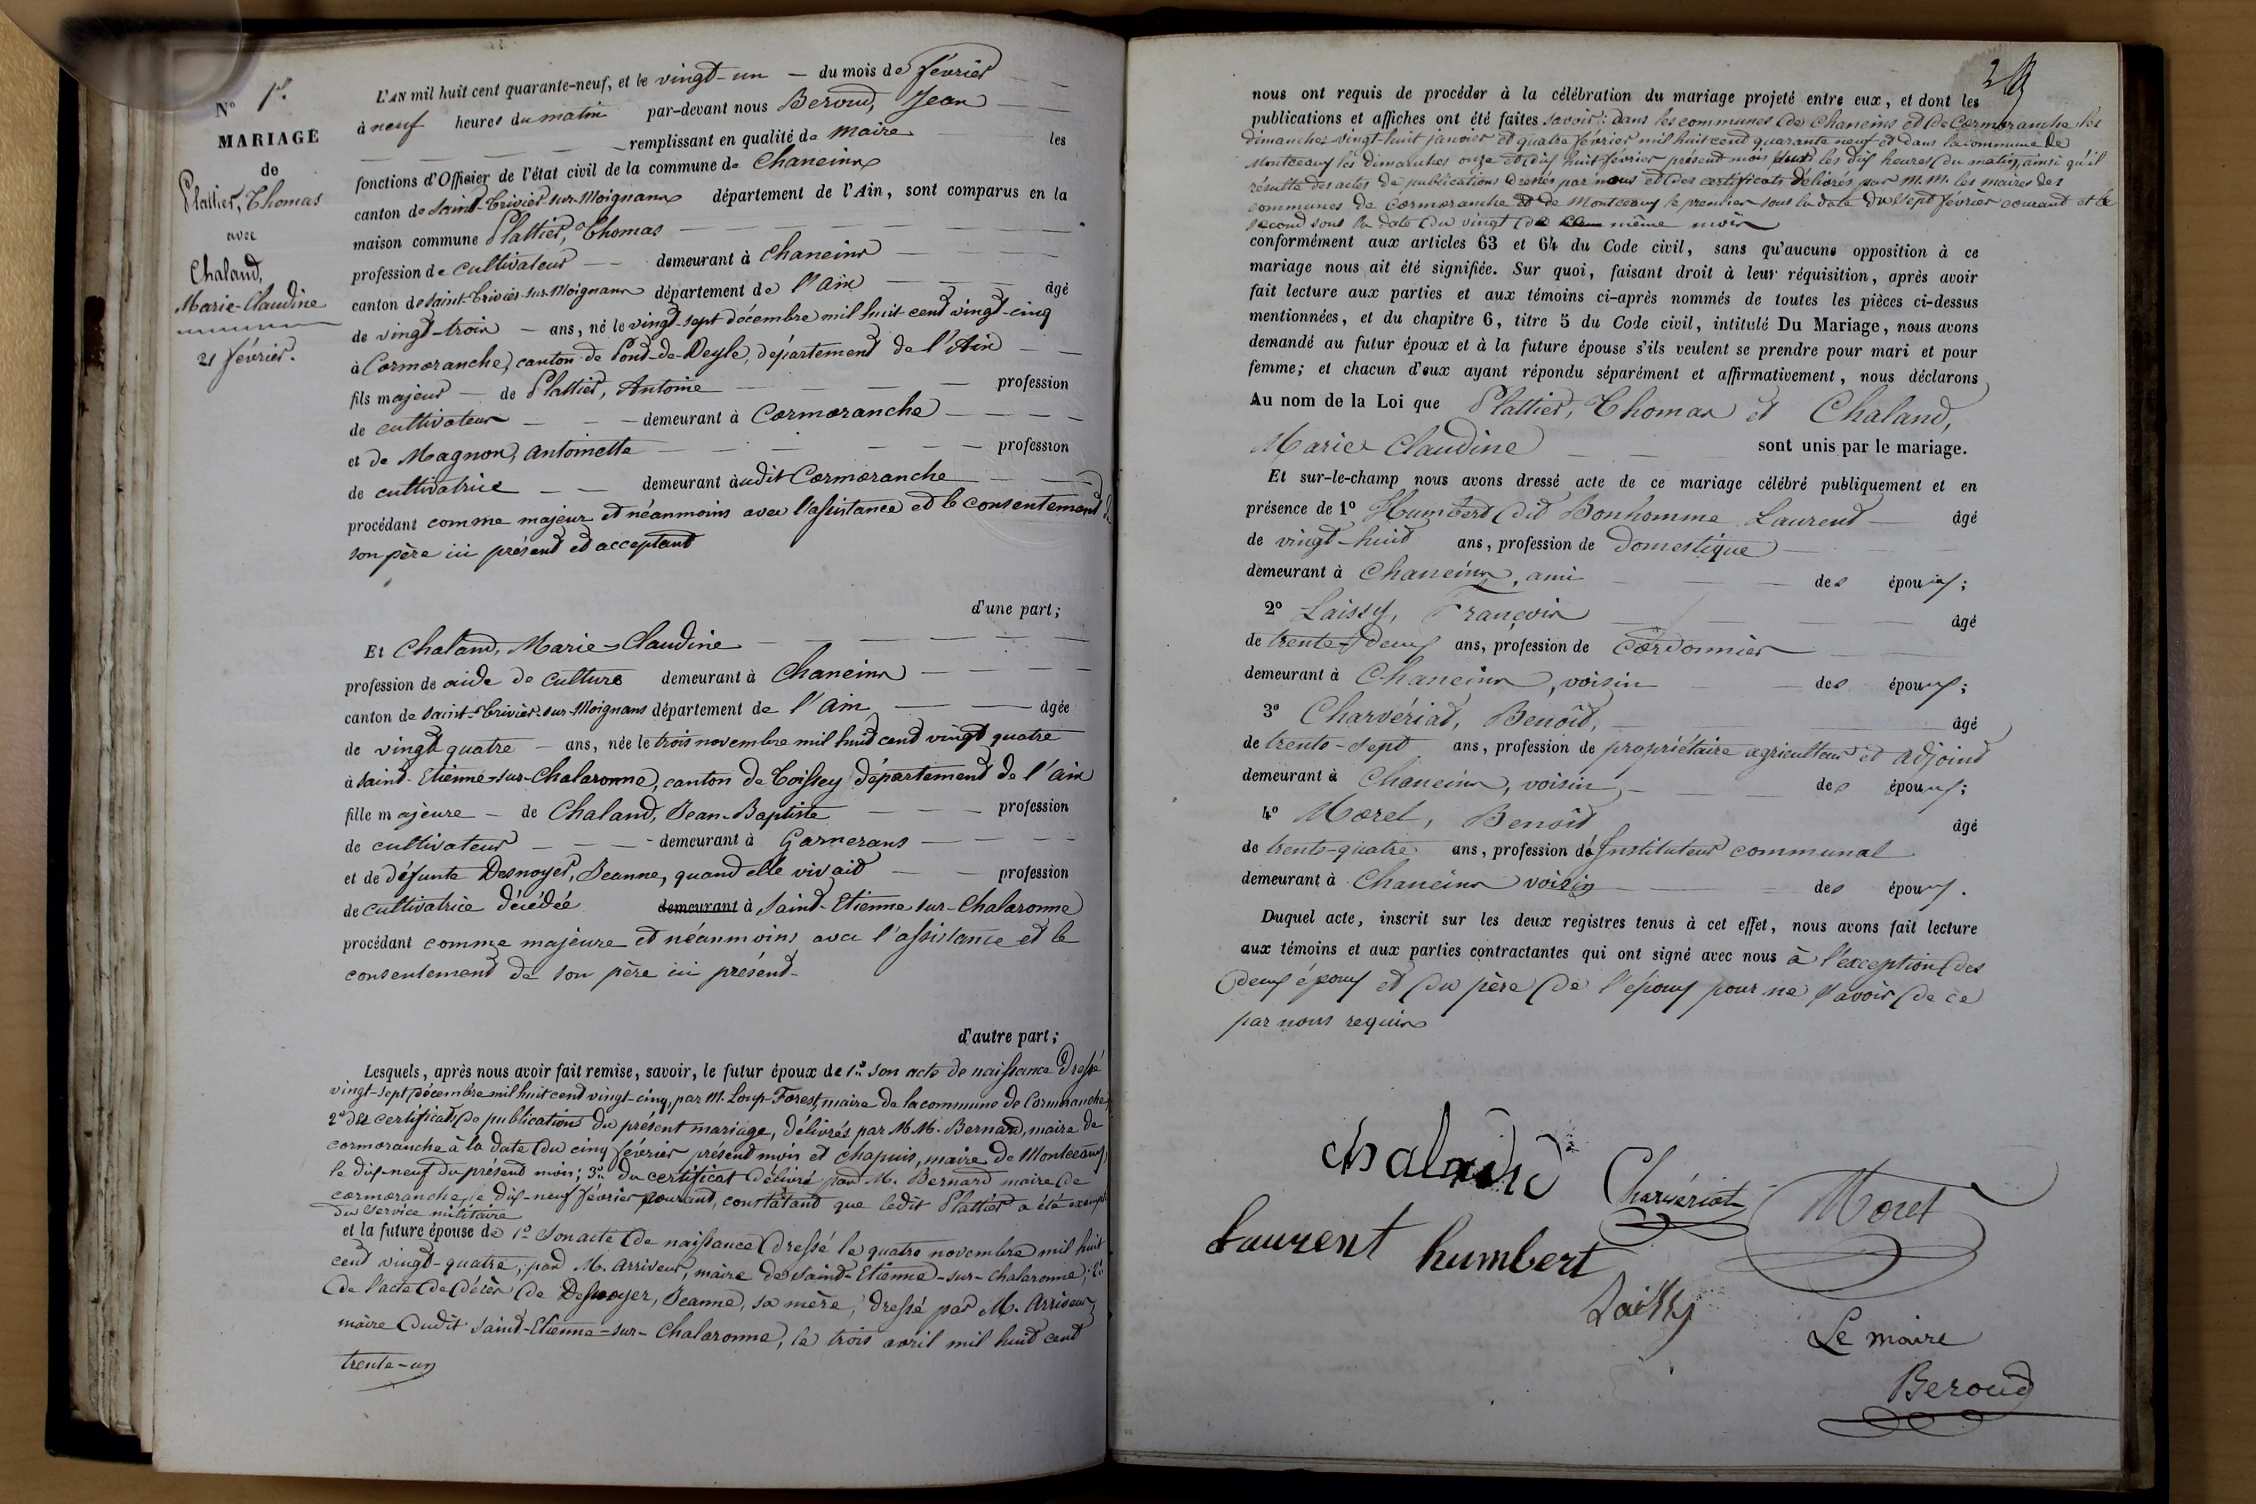 N° 1er.
MARIAGE
de
Plattier, Thomas
avec
Chaland,
Marie-Claudine
21 février.
L'AN mil huit cent quarante-neuf, et le vingt-un — du mois de février
à neuf heures du matin par-devant nous Beroud, Jean
remplissant en qualité de maire les
fonctions d'Officier de l'état civil de la commune de Chaneins
canton de Saint-Trivier-sur-Moignans département de l'Ain, sont comparus en la
maison commune Plattier, Thomas
profession de cultivateur — demeurant à Chaneins
canton de Saint-Trivier-sur-Moignans département de l'Ain âgé
de vingt-trois — ans, né le vingt-sept décembre mil huit cent vingt-cinq
à Cormoranche, canton de Pont-de-Veyle, département de l'Ain
fils majeur — de Plattier, Antoine profession
de cultivateur — demeurant à Cormoranche
et de Magnon, Antoinette profession
de cultivatrice — demeurant àudit Cormoranche
procédant comme majeur et néanmoins avec l'assistance et le consentement de
son père ici présent et acceptant
d'une part;
Et Chaland, Marie-Claudine
profession de aide de culture demeurant à Chaneins
canton de Saint-Trivier-sur-Moignans département de l'Ain — âgée
de vingt quatre — ans, née le trois novembre mil huit cent vingt quatre
à Saint-Etienne-sur-Chalaronne, canton de Toissey département de l'Ain
fille majeure — de Chaland, Jean-Baptiste — profession
de cultivateur — demeurant à Garnerans
et de défunte Desnoyer, Jeanne, quand elle vivait — profession
de cultivatrice décédée demeurant à Saint-Etienne-sur-Chalaronne
procédant comme majeure et néanmoins avec l'assistance et le
consentement de son père ici présent.
d'autre part;
Lesquels, après nous avoir fait remise, savoir, le futur époux de 1° son acte de naissance dressé
vingt-sept décembre mil huit cent vingt-cinq, par M. Loup-Forest, maire de la commune de Cormoranche,
2° des certificats de publications du présent mariage, délivrés par MM. Bernard, maire de
Cormoranche à la date du cinq février présent mois et Chapuis, maire de Montceaux,
le dix-neuf du présent mois; 3° du certificat délivré par M. Bernard maire de
Cormoranche, le dix-neuf février courant, constatant que ledit Plattier a été exempté
du service militaire
et la future épouse de 1° son acte de naissance dressé le quatre novembre mil huit
cent vingt-quatre, par M. Arriveur, maire de Saint-Etienne-sur-Chalaronne; 2°
de l'acte de décès de Desnoyer, Jeanne, sa mère, dressé par M. Arriveur,
maire dudit Saint-Etienne-sur-Chalaronne, le trois avril mil huit cent
trente-un
nous ont requis de procéder à la célébration du mariage projeté entre eux, et dont les
publications et affiches ont été faites savoir: dans les communes de Chaneins et de Cormoranche les
dimanches vingt-huit janvier et quatre février mil huit cent quarante neuf et dans la commune de
Montceaux les dimanches onze et dix huit février présent mois les dix heures du matin, ainsi qu'il
résulte des actes de publications dressés par nous et des certificats délivrés par M.M. les maires des
communes de Cormoranche et de Montceaux le premier sous la date du sept février courant et le
second sous la date du vingt de même mois
conformément aux articles 63 et 64 du Code civil, sans qu'aucune opposition à ce
mariage nous ait été signifiée. Sur quoi, faisant droit à leur réquisition, après avoir
fait lecture aux parties et aux témoins ci-après nommés de toutes les pièces ci-dessus
mentionnées, et du chapitre 6, titre 5 du Code civil, intitulé Du Mariage, nous avons
demandé au futur époux et à la future épouse s'ils veulent se prendre pour mari et pour
femme; et chacun d'eux ayant répondu séparément et affirmativement, nous déclarons
Au nom de la Loi que Plattier, Thomas et Chaland,
Marie Claudine sont unis par le mariage.
Et sur-le-champ nous avons dressé acte de ce mariage célébré publiquement et en
présence de 1° Humbert dit Bonhomme Laurent — âgé
de vingt-huit ans, profession de domestique
demeurant à Chaneins, ami des époux;
2° Laissy, François âgé
de trente-deux ans, profession de cordonnier
demeurant à Chaneins, voisin des époux;
3° Charvériat, Benoît, âgé
de trente-sept ans, profession de propriétaire agriculteur et adjoint
demeurant à Chaneins, voisin des époux;
4° Morel, Benoît âgé
de trente-quatre ans, profession de Instituteur communal
demeurant à Chaneins voisin des époux.
Duquel acte, inscrit sur les deux registres tenus à cet effet, nous avons fait lecture
aux témoins et aux parties contractantes qui ont signé avec nous à l'exception des
deux époux et du père de l'époux pour ne savoir de ce
par nous requis
Charvériat
Morel
Laurent humbert
Laissy
Le maire
Beroud